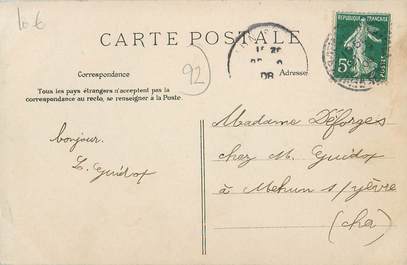 10 €
CARTE POSTALE
92
15 25
08
REPUBLIQUE FRANÇAISE
5c
POSTES
Correspondance
Adresse
Tous les pays étrangers n'acceptent pas la
correspondance au recto, se renseigner à la Poste.
bonjour.
L. Guidox
Madame Déforges
chez M. Guidox
à Mehun s/yèvre
(cher)